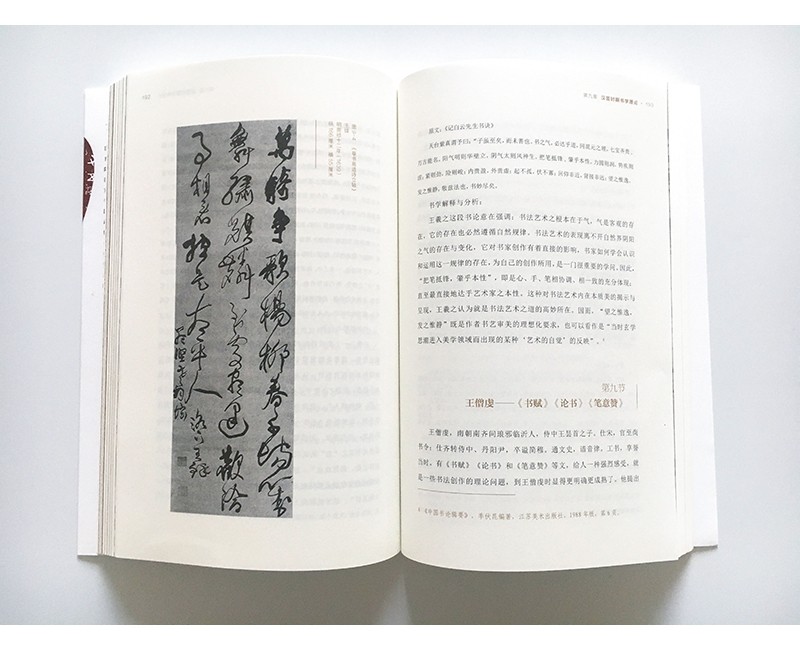 萬騎爭歌楊柳春千場對
舞繡騏驎到處盡逢歡洽
事相看總是太平人 洛下王鐸
原文：《记白云先生书诀》
天台紫真谓予曰：“子虽至矣，而未善也。书之气，必达乎道，同混元之理。七宝齐贵，
万古能名。阳气明则华壁立，阴气太则风神生。把笔抵锋，肇乎本性。力圆则润，势疾则
涩；紧则劲，险则峻；内贵盈，外贵虚；起不孤，伏不寡；回仰非近，背接非远；望之惟逸，
发之惟静。敬兹法也，书妙尽矣。
书学解释与分析：
王羲之这段书论意在强调：书法艺术之根本在于气，气是客观的存
在，它的存在也必然遵循自然规律。书法艺术的表现离不开自然界阴阳
之气的存在与变化，它对书家创作有着直接的影响，书家如何学会认识
和运用这一规律的存在，为自己的创作所用，是一门很重要的学问，因此，
“把笔抵锋，肇乎本性”，即是心、手、笔相协调、相一致的充分体现；
直至最直接地达乎艺术家之本性。这种对书法艺术内在本质美的揭示与
呈现，王羲之认为就是书法艺术之道的高妙所在。因而，“望之惟逸，
发之惟静”既是作者书艺审美的理想化要求，也可以看作是“当时玄学
思潮进入美学领域而出现的某种‘艺术的自觉’的反映”。
第九节
王僧虔——《书赋》《论书》《笔意赞》
王僧虔，南朝南齐间琅邪临沂人，侍中王昙首之子。仕宋，官至尚
书令；仕齐转侍中、丹阳尹，卒谥简穆。通文史，谙音律，工书，享誉
当时，有《书赋》《论书》和《笔意赞》等文，给人一种强烈感受，就
是一些书法创作的理论问题，到王僧虔时显得更明确更成熟了，他提出
《中国书论辑要》，季伏昆编著，江苏美术出版社，1988年版，第6页。